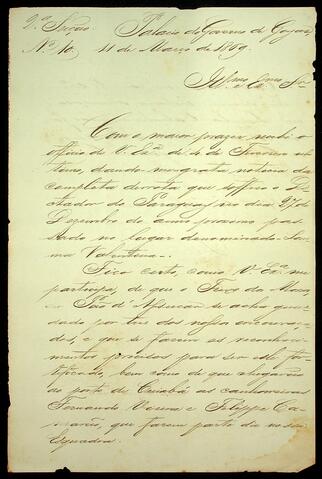 2.ª Secção. Palacio do Governo de Goyaz,
N.º 10. 11 de Março de 1869.
Illmo. e Exmo. Snr.
Com o maior prazer recebi o
officio de V. Exª. de 4 de Fevereiro ul-
timo, dando-me grata noticia da
completa derrota que soffreu o Di-
ctador do Paraguay, no dia 27 de
Dezembro do anno proximo pas-
sado no lugar denominado - Lo-
ma Valentina -.
Fico certo, como V. Exª. me
participa, de que o
São se acha guar-
dado por tres dos nossos encouraça-
dos, e que se fazem os reconheci-
mentos precisos para ser
tificado, bem como de que chegarão
ao porto de Cuiabá as canhoneiras
Fernando Vieira e Filippe Ca-
marão, que fazem parte da nossa
Esquadra.